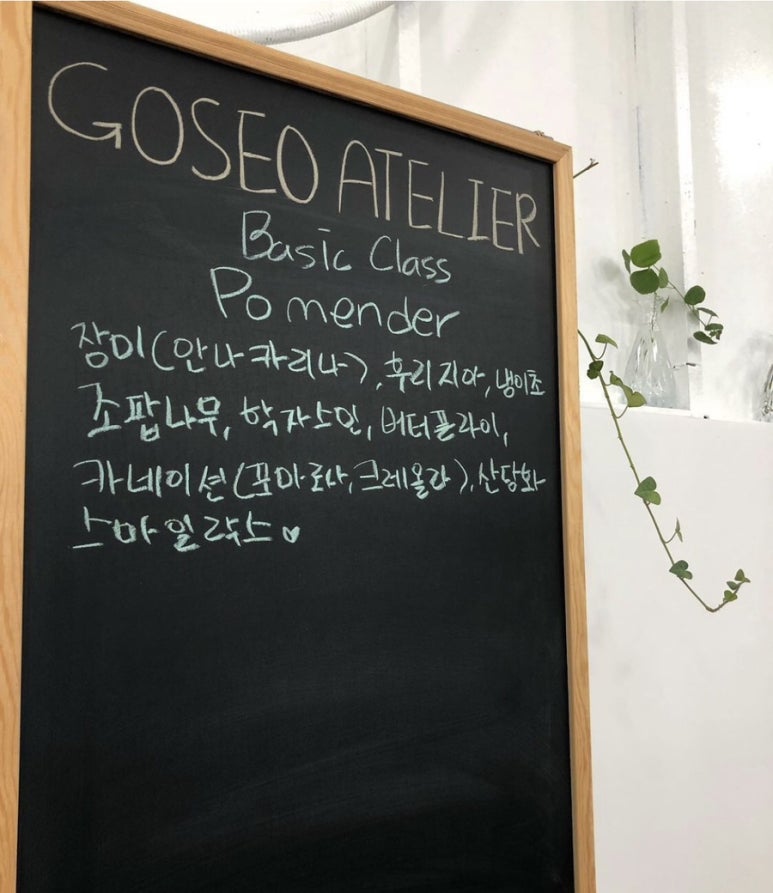 GOSEO ATELIER
Basic Class
Pomender
장미(안나카리나),후리지아, 냉이초
조팝나무, 학자스민, 버터플라이,
카네이션(포마로사, 크레올라), 산당화
스마일락스♥